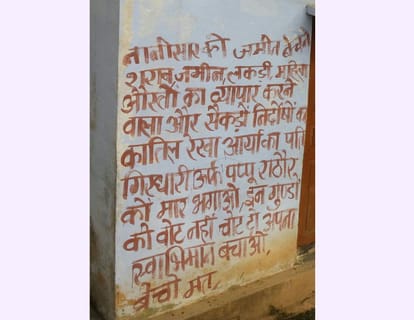 तानीसार को जमीन बेचने
शराब, जमीन, लकड़ी, महिला
औरतों का व्यापार करने
वाला और सैकड़ों निर्दोषों का
कातिल रेखा आर्या का पति
गिरधारी उर्फ पप्पू राठौर
को मार भगाओ, इन गुण्डों
को वोट नहीं चोट दो अपना
स्वाभिमान बचाओ,
बेचो मत